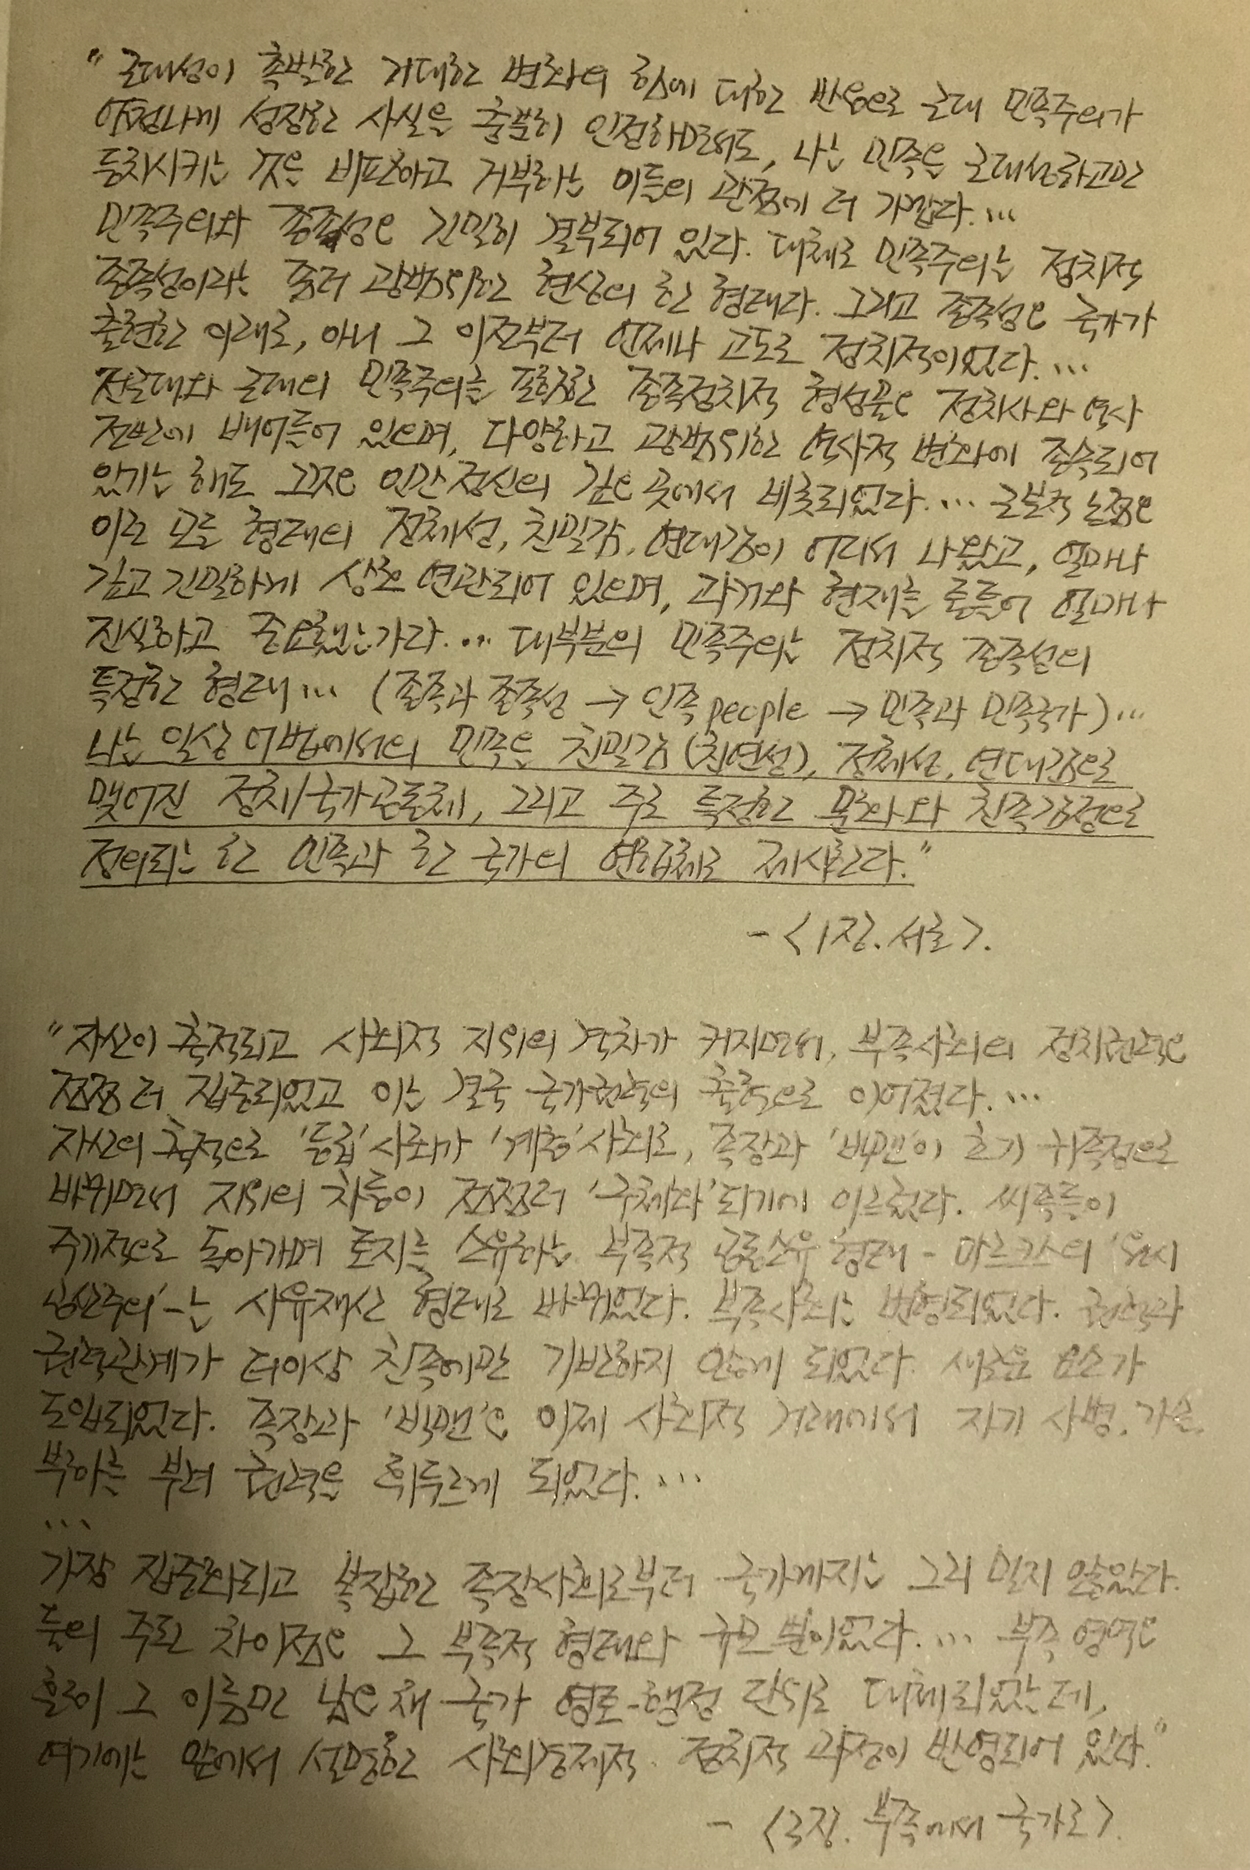 "근대성이 촉발한 거대한 변화의 힘에 대한 반응으로 근대 민족주의가
엄청나게 성장한 사실을 충분히 인정하면서도, 나는 민족을 근대성하고만
등치시키는 것을 비판하고 거부하는 이들의 관점에 더 가깝다. ...
민족주의와 종족성은 긴밀히 결부되어 있다. 대체로 민족주의는 정치적
종족성이라는 좀더 광범위한 현상의 한 형태다. 그리고 종족성은 국가가
출현한 이래로, 아니 그 이전부터 언제나 고도로 정치적이었다. ...
전근대와 근대의 민족주의를 포함한 종족정치적 형성물은 정치사와 역사
전반에 배어들어 있으며, 다양하고 광범위한 역사적 변화에 종속되어
있기는 해도 그것은 인간 정신의 깊은 곳에서 비롯되었다. ... 근본적 논점은
이 모든 형태의 정체성, 친밀감, 연대감이 어디서 나왔고, 얼마나
깊고 긴밀하게 상호 연관되어 있으며, 과거와 현재를 통틀어 얼마나
진실하고 중요했는가라. ... 대부분의 민족주의는 정치적 종족성의
특정한 형태 ... (종족과 종족성 → 인족 people → 민족과 민족국가) ...
나는 일상 어법에서의 민족을 친밀감(친연성), 정체성, 연대감으로
맺어진 정치/국가공동체, 그리고 주로 특정한 문화와 친족감정으로
정의되는 한 인족과 한 국가의 연합체로 제시한다."
- <1장. 서론>.
"자산이 축적되고 사회적 지위의 격차가 커지면서, 부족사회의 정치권력은
점점 더 집중되었고 이는 결국 국가권력의 출현으로 이어졌다. ...
자산의 축적으로 '등급'사회가 '계층'사회로, 족장과 '빅맨'이 초기 귀족정으로
바뀌면서 지위의 차등이 점점더 '구체화'되기에 이르렀다. 씨족들이
주기적으로 돌아가며 토지를 소유하는 부족적 공동소유 형태 - 마르크스의 '원시
공산주의' - 는 사유재산 형태로 바뀌었다. 부족사회는 변형되었다. 권력과
권력관계가 더이상 친족에만 기반하지 않게 되었다. 새로운 요소가
도입되었다. 족장과 '빅맨'은 이제 사회적 거래에서 자기 사병, 가솔,
부하를 부려 권력을 휘두르게 되었다. ...
...
가장 집중화되고 복잡한 족장사회로부터 국가까지는 그리 멀지 않았다.
둘의 주된 차이점은 그 부족적 형태와 규모뿐이었다. ... 부족 영역은
흔히 그 이름만 남은 채 국가 영토-행정 단위로 대체되었는데,
여기에는 앞에서 설명한 사회경제적 정치적 과정이 반영되어 있다."
- <3장. 부족에서 국가로>.